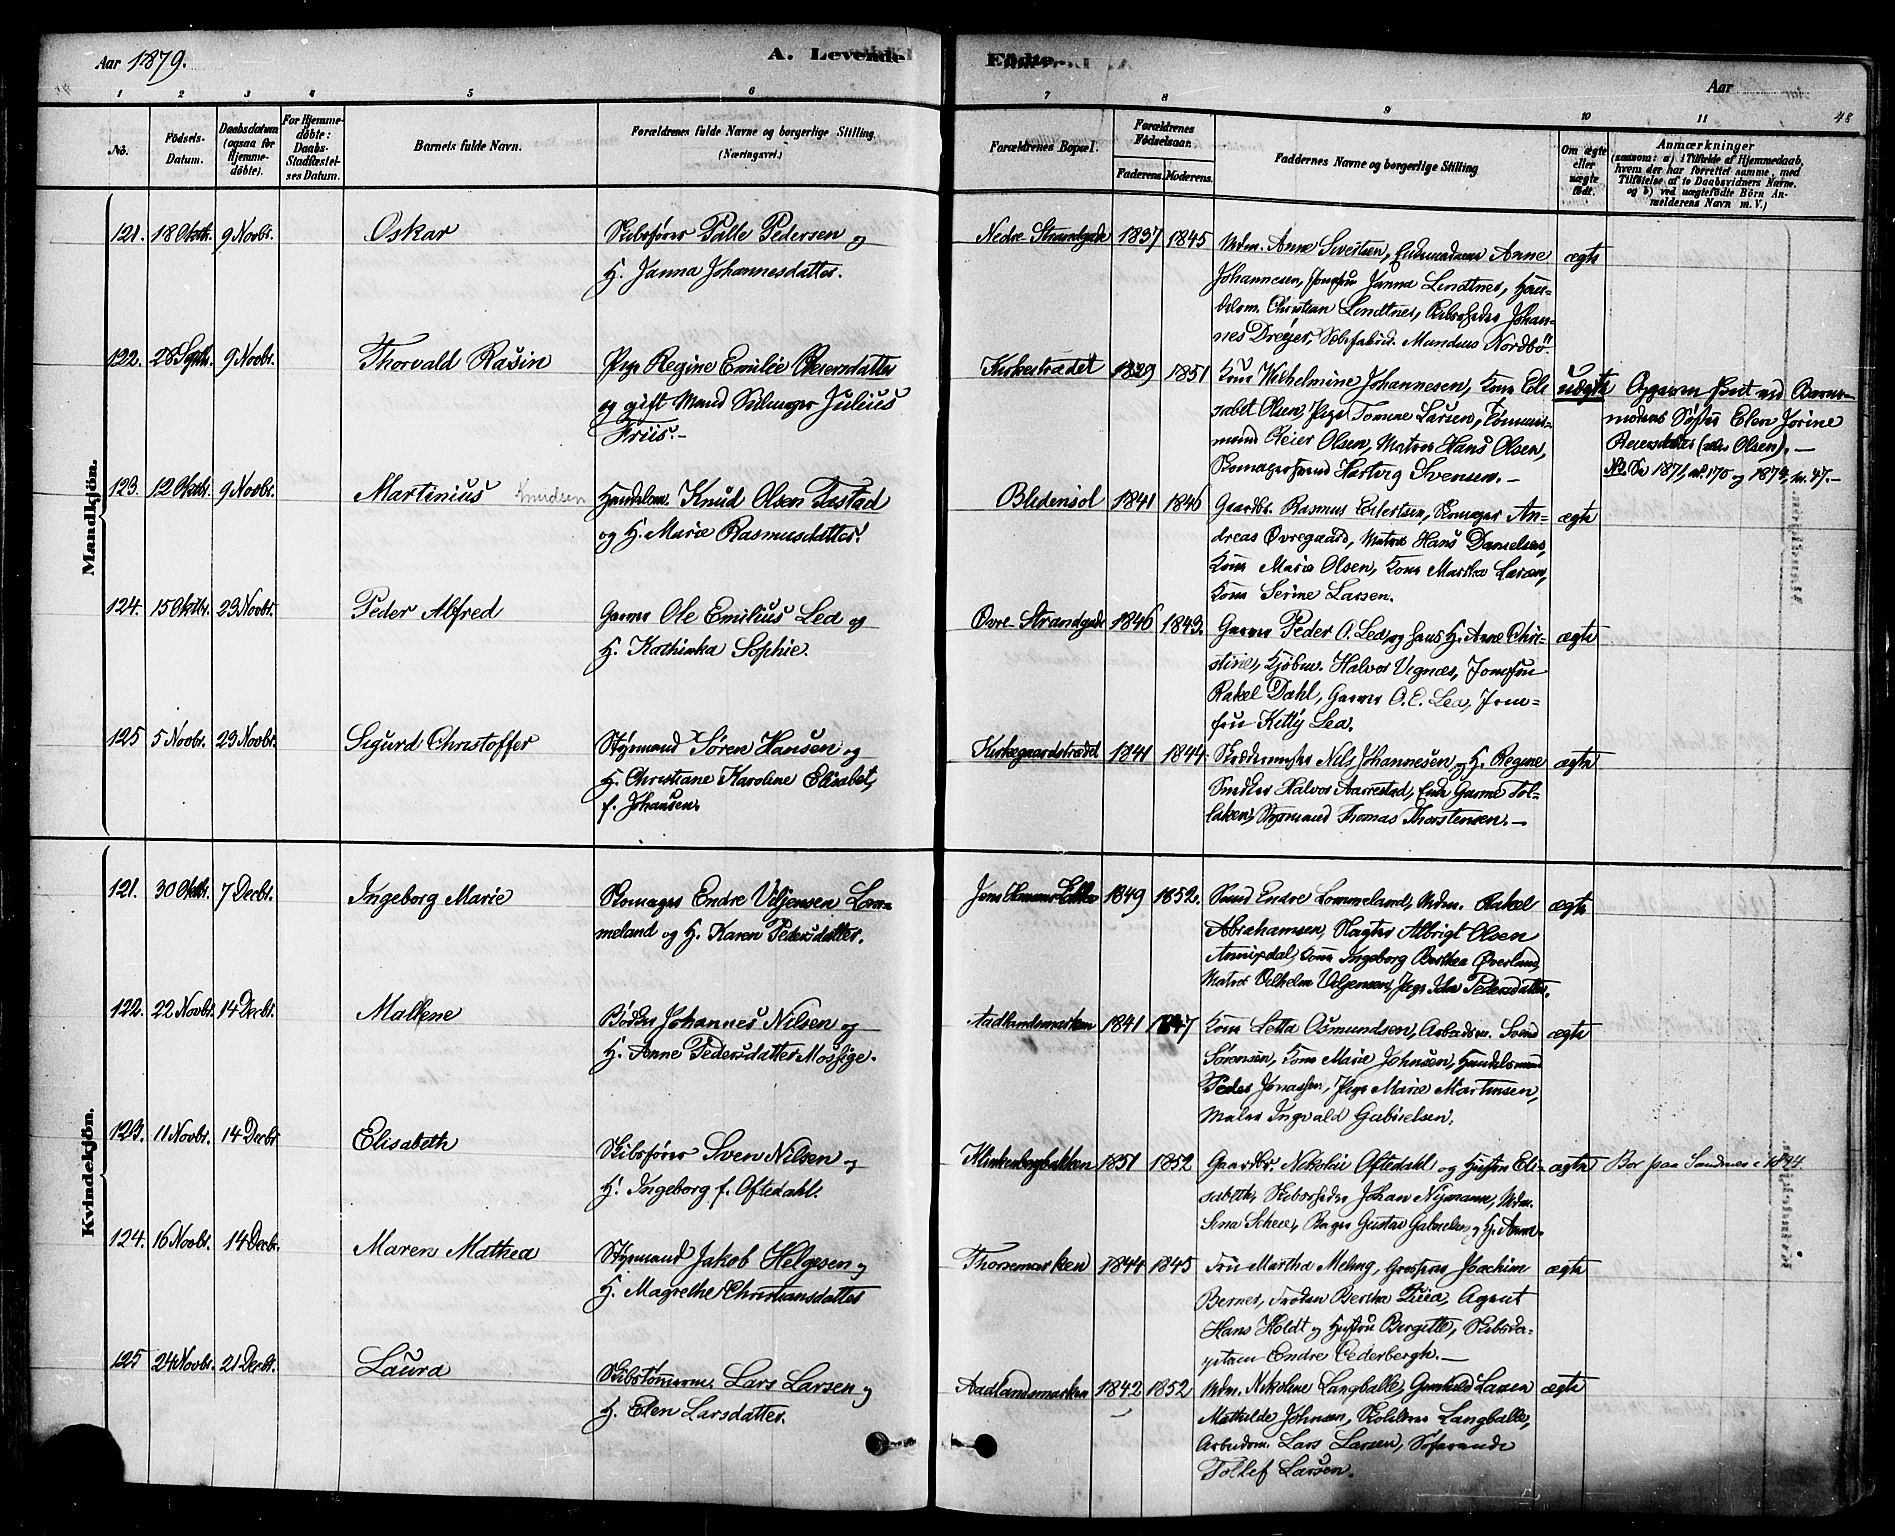 Aar 1879.
A. Levende Födte.
Aar
48
1 2 3 4 5 6 7 8 9 10 11
No.
Födsels-Datum.
Daabsdatum (ogsaa for Hjemmedöbte).
For Hjemmedöbte: Daabs-Stadfæstelses Datum.
Barnets fulde Navn.
Forældrenes fulde Navne og borgerlige Stilling. (Næringsvei.)
Forældrenes Bopæl.
Forældrenes Födselsaar.
Faderens. Moderens.
Faddernes Navne og borgerlige Stilling
Om ægte eller uægte födt.
Anmærkninger
(saasom: a) i Tilfælde af Hjemmedaab, hvem der har forrettet samme, med Tilföielse af to Daabsvidners Navne, og b) ved uægtefödte Börn Anmelderens Navn m. V.)
Mandkjön.
121. 18 Oktbr. 9 Novbr. Oskar
Skibsfører Palle Pedersen og
H. Janna Johannesdatter.
Nedre Strandgade 1837 1845
Mdm. Anne Sivertsen, Anne
Johannesen, Jomfru Janna Lindtner, Han-
delsm. Christian Lindtner, Skibsreder Johan-
nes Dreyer, Mundus Nordbö.
ægte
122. 28 Septbr. 9 Novbr. Thorvald Rasin
Pige Regine Emilie Reiersdatter
og gift Mand Julius
Friis.-
Kirkestrædet 1829 1851
Kone Wilhelmine Johannesen, Kone Eli-
sabet Olsen, Pige Tomine Larsen, Tømmer-
mand Reier Olsen, Matros Hans Olsen,
Skomagersvend Hartvig Svensen. -
uægte
Opgaven skeet ved Barne-
moderens Søster Elen Jorine
Reiersdatter (Olsen). -
NB. Se 1871, nr. 170 og 1874, nr. 47. -
123. 12 Oktbr. 9 Novbr. Martinius Knudsen
Handelsm. Knud Olsen Tastad
og H. Marie Rasmusdatter.
Bledensol 1841 1846
Gaardbr. Rasmus Eilertsen, Skomager An-
dreas Øvregaard, Matros Hans Danielsen,
Kone Marie Olsen, Kone Martha Larsen,
Kone Serine Larsen.
ægte
124. 15 Oktbr. 23 Novbr. Peder Alfred
Garver Ole Emilius Lea og
H. Kathinka Sophie.
Øvre Strandgade 1846 1843.
Garver Peder O. Lea, og hans H. Anne Chri-
stine, Kjøbm. Halvor Vignæs, Jomfru
Rakel Dahl, Garver O. E. Lea, Jom-
fru Kitty Lea.
ægte
125 5 Novbr. 23 Novbr. Sigurd Christoffer
Styrmand Søren Hansen og
H. Christiane Karoline Elisabet,
f. Johansen.
Kirkegaardstrædet 1841 1844
Nils Johannesen og H. Regine
Snedker Halvor Aarrestad, Enke Gurine Tol-
laksen, Styrmand Thomas Thorstensen. -
ægte
Kvindekjön.
121. 30 Oktbr. 7 Decbr. Ingeborg Marie
Skomager Endre Viljensen Lom-
meland og H. Karen Pedersdatter.
1849 1852.
Smed Endre Lommeland, Mdm. Rakel
Abrahamsen, Slagter Albrigt Olsen
Annisdal, Kone Ingeborg Berthea Øverland,
Matros Vilhelm Viljensen, Pige Ida Pedersdatter.
ægte
122. 22 Novbr. 14 Decbr. Mallene
Bødker Johannes Nilsen og
H. Anne Pedersdatter Mossige.
Aadlandsmarken 1841 1847
Kone Letta Osmundsen, Arbeidsm. Svend
Sörensen, Kone Marie Johnsen, Handelsmand
Peder Jonassen, Pige Marie Martinsen,
Maler Ingvald Gabrielsen.
ægte
123. 11 Novbr. 14 Decbr. Elisabeth
Skibsfører Sven Nilsen og
H. Ingeborg f. Oftedahl.
Klinkenbergbakken 1851 1852
Gaardbr. Nikolai Oftedahl og Hustru Eli-
sabeth, Skibsreder Johan Nymann, Mdm.
Sina Scheie, Bager Gustav Gabrielsen og H. Anna.
ægte
Bor paa Sandnes i 1894
124. 16 Novbr. 14 Decbr. Maren Mathea
Styrmand Jakob Helgesen og
H. Magrethe Christiansdatter
Thorsemarken 1844 1845
Fru Martha Meling, Joachim
Berner, Frøken Bertha , Agent
Hans Holdt og Hustru Bergitte, Skibska-
pitain Endre Cederbergh. -
ægte
125 24 Novbr. 21 Decbr. Laura
Skibstømrm. Lars Larsen og
H. Elen Larsdatter.
Aadlandsmarken 1842 1852
Mdm. Nikoline Langballe, Gunhild Larsen
Mathilde Johnsen, Langballe,
Arbeidsm. Lars Larsen, Søfarende
Tollef Larsen.
ægte